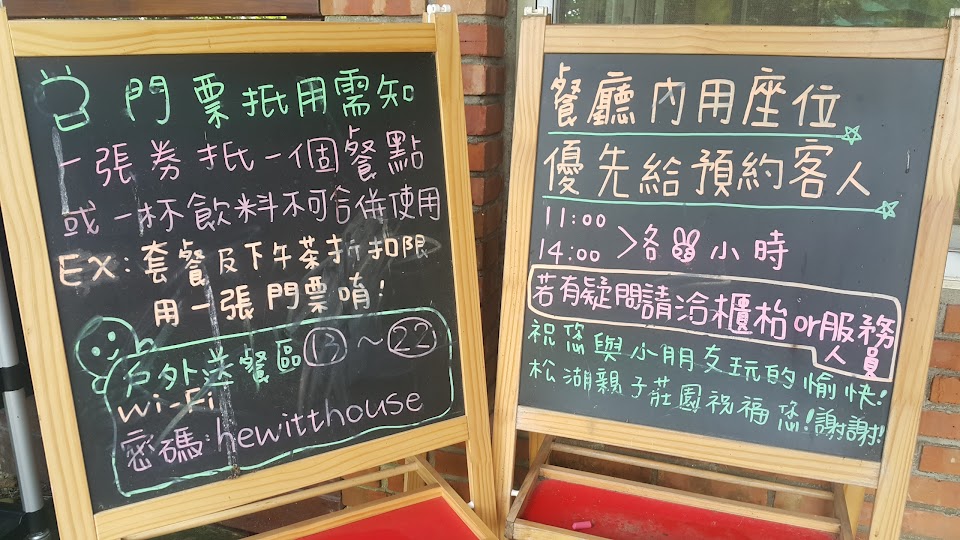 門票抵用需知
一張券抵一個餐點
或一杯飲料不可合併使用
EX：套餐及下午茶折扣限
用一張門票唷！
戶外送餐區 13～22
Wi-Fi
密碼：hewitthouse
餐廳內用座位
優先給預約客人
11:00
14:00 ＞各 小時
若有疑問請洽櫃枱or服務
人員
祝您與小朋友玩的愉快！
松湖親子莊園祝福您！謝謝！